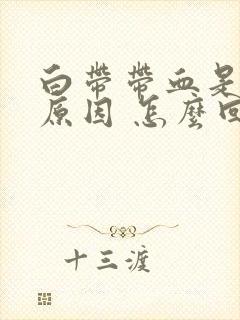 白带带血是
原因 怎么回
十三渡